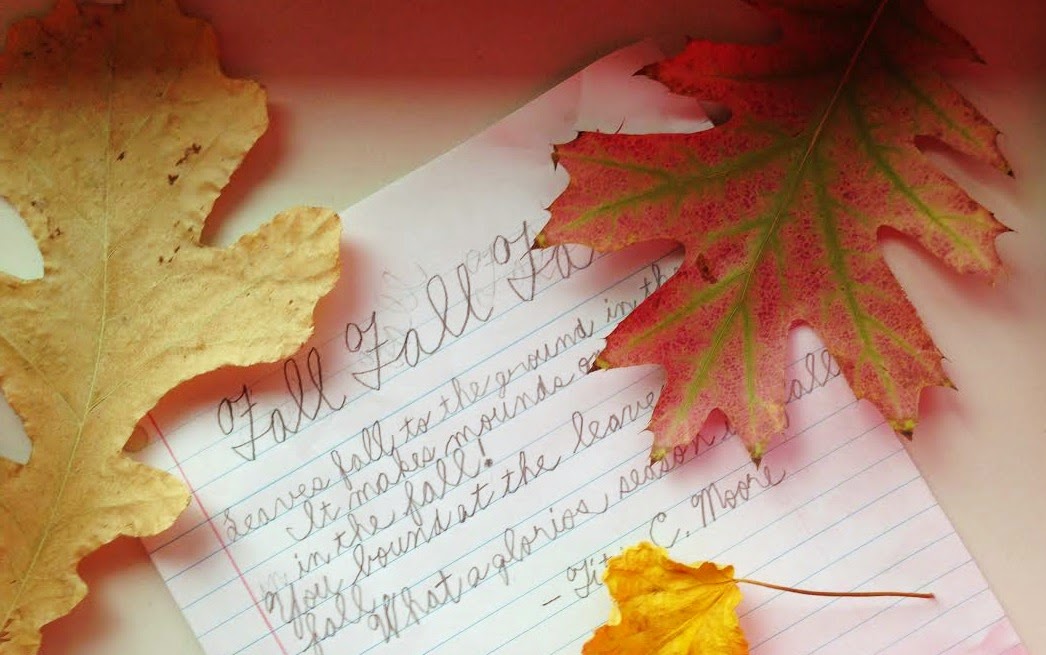 Fall Fall Fa
Leaves fall to the ground in th
It makes mounds o
in the fall!
You bound at the leave
fall
What a glorios season fall
- C. Moore